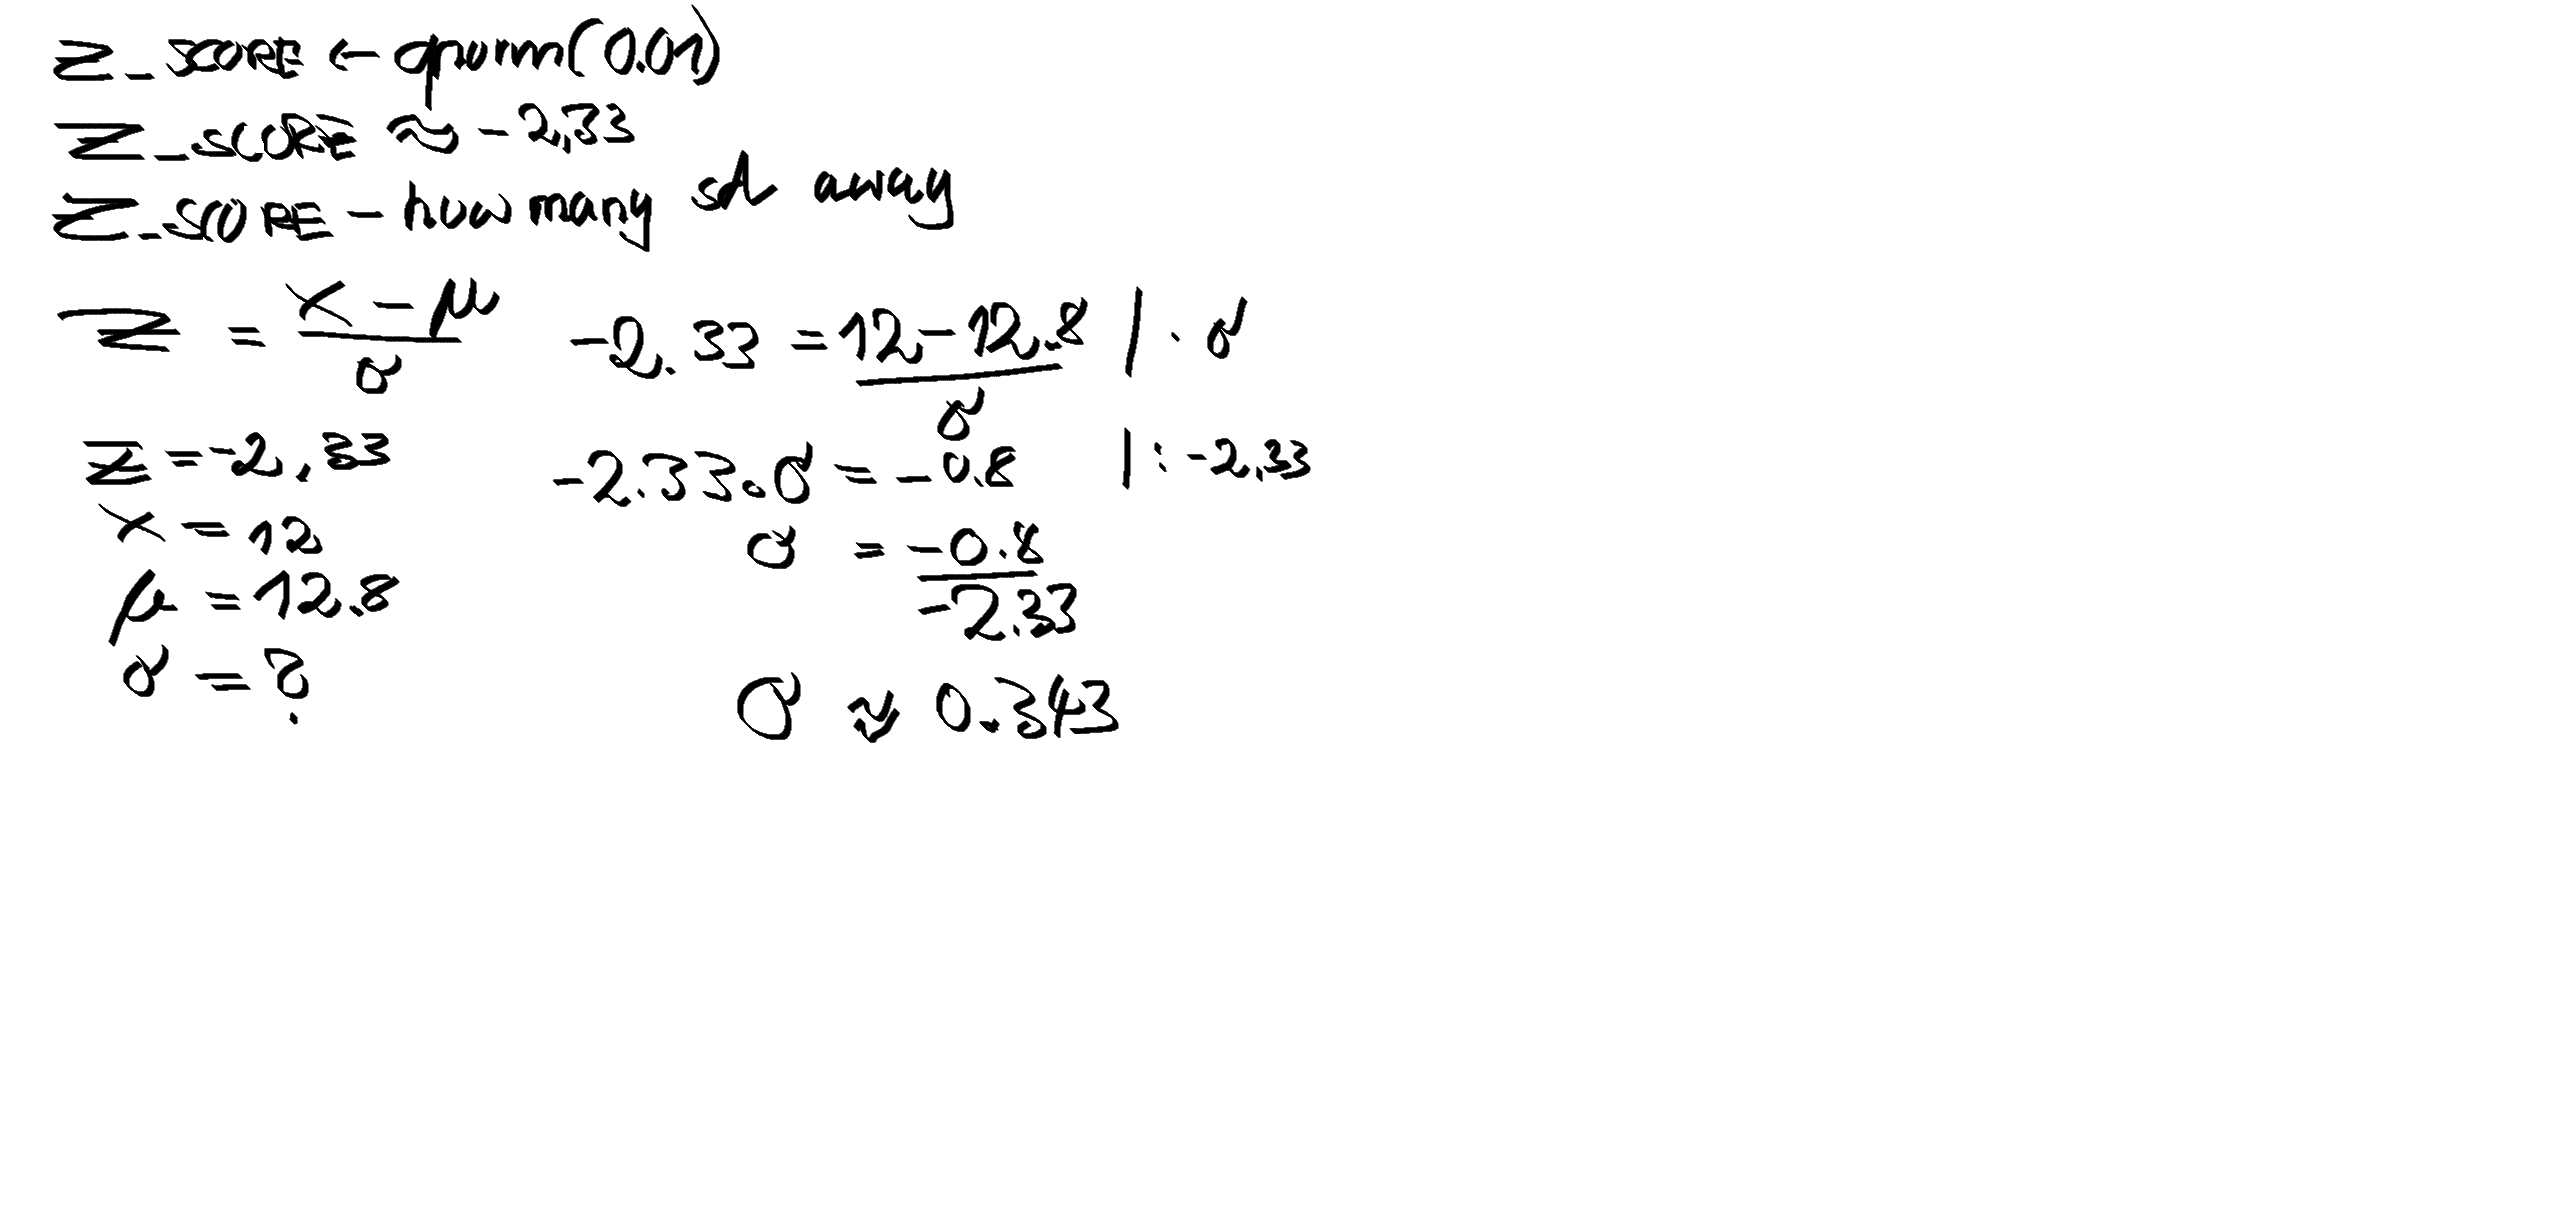 Z_SCORE ← qnorm(0.01)
Z_SCORE ≈ -2,33
Z_SCORE - how many sd away
Z = (x - μ) / σ
z = -2,33
x = 12
μ = 12.8
σ = ?
-2.33 = (12 - 12.8) / σ | · σ
-2.33 · σ = -0.8 | : -2,33
σ = -0.8 / -2.33
σ ≈ 0.343